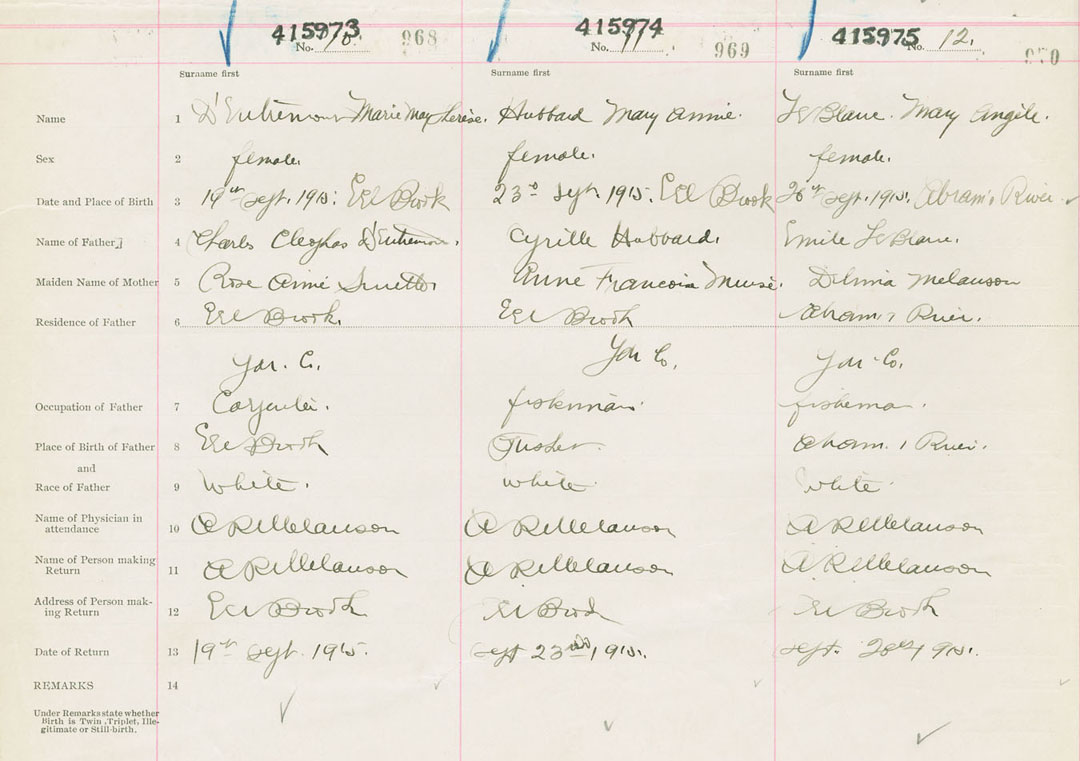 415973 415974 415975
No. 10 968 No. 11 969 No. 12. 970
Surname first Surname first Surname first
Name 1 D'Entremont Marie May Therese. Hubbard Mary Annie. LeBlanc. Mary Angèle.
Sex 2 female. female. female.
Date and Place of Birth 3 19th Sept. 1915: Eel Brook 23d Sept. 1915. Eel Brook 26th Sept. 1915. Abram's River
Name of Father 4 Charles Cleophas D'Entremont. Cyrille Hubbard. Emile LeBlanc.
Maiden Name of Mother 5 Rose Aimé Surette Anne Francoise Muise. Melanson
Residence of Father 6 Eel Brook. Eel Brook Abram's River.
Yar. Co. Yar Co. Yar. Co.
Occupation of Father 7 Carpenter. fisherman. fisherman.
Place of Birth of Father 8 Eel Brook Tusket Abram's River.
and
Race of Father 9 White. white. white.
Name of Physician in
attendance 10 A R Melanson A R Melanson A R Melanson
Name of Person making
Return 11 A R Melanson A R Melanson A. R Melanson
Address of Person mak-
ing Return 12 Eel Brook Eel Brook Eel Brook
Date of Return 13 19th Sept. 1915. Sept 23rd 1915. Sept. 26th 1915.
REMARKS 14
Under Remarks state whether
Birth is Twin, Triplet, Ille-
gitimate or Still-birth.